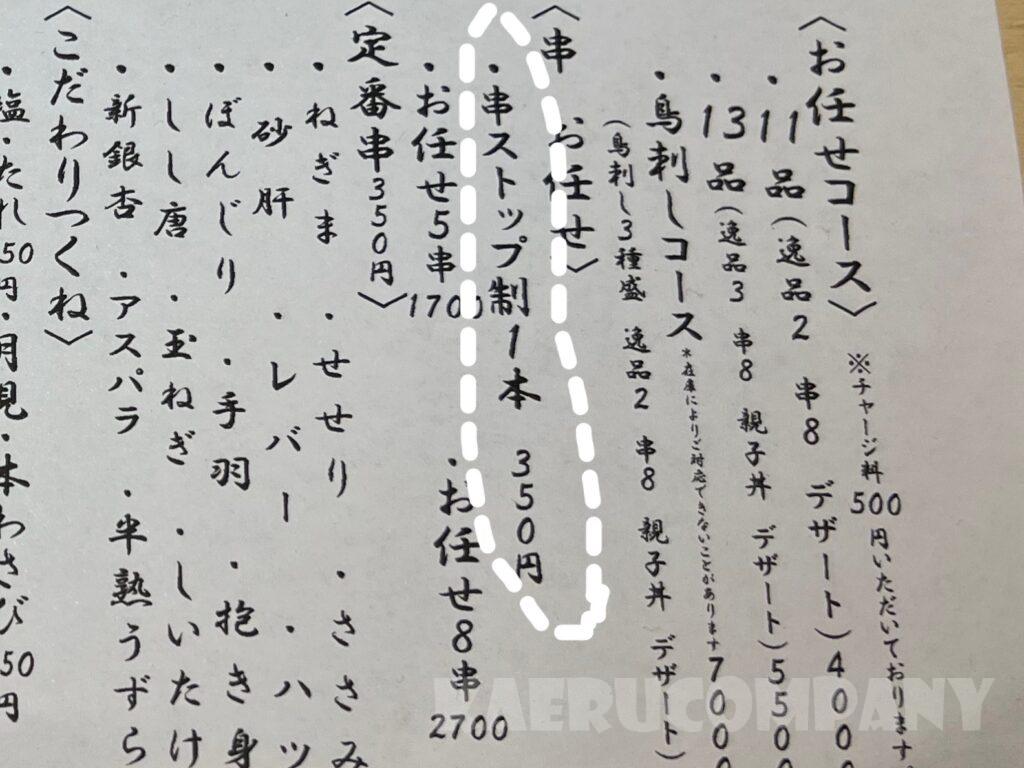 〈お任せコース〉
※チャージ料500円いただいております。
・11品(逸品2 串8 デザート)400
・13品(逸品3 串8 親子丼 デザート)550
・鳥刺しコース
*在庫によりご対応できないことがあります
700
(鳥刺し3種盛 逸品2 串8 親子丼 デザート)
〈串 お任せ〉
・串ストップ制1本 350円
・お任せ5串1700
・お任せ8串 2700
〈定番串350円〉
・ねぎま ・せせり ・ささみ
・砂肝 ・レバー ・ハツ
・ぼんじり ・手羽 ・抱き身
・しし唐 ・玉ねぎ ・しいたけ
・新銀杏 ・アスパラ ・半熟うずら
〈こだわりつくね〉
・塩・たれ 50円・月見・本わさび 50円
KAERUCOMPANY